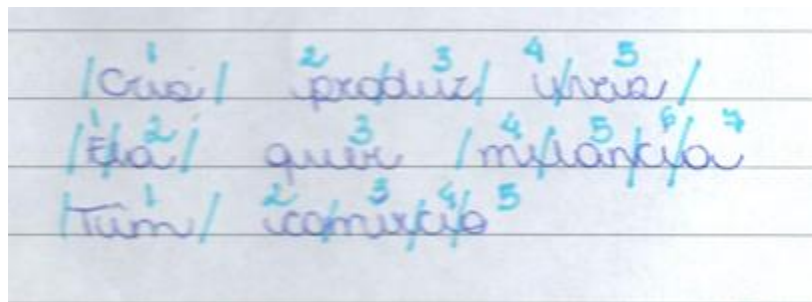 1 2 3 4 5
/Cria/ pro/duz/
1 2 3 4 5 6 7
/E/la/ quer /me/lan/ci/a
1 2 3 4 5
/Tem/ co/mer/ci/o